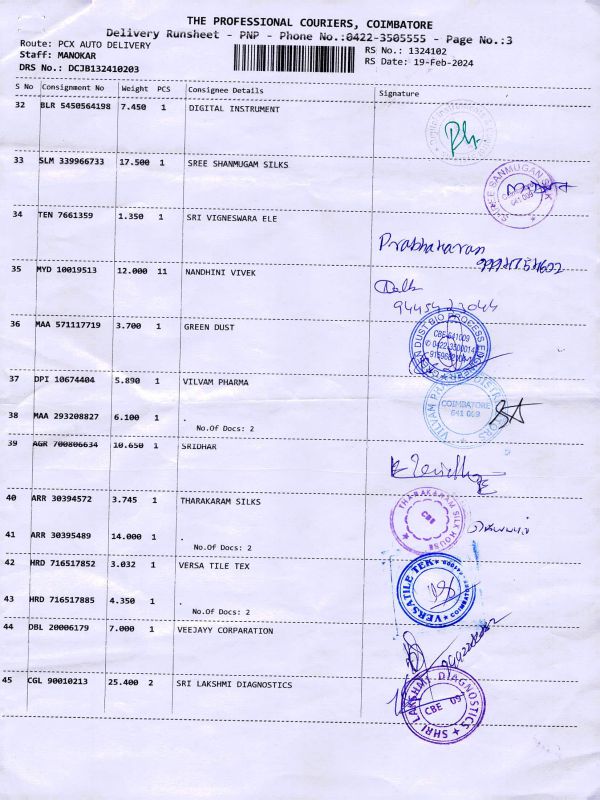 THE PROFESSIONAL COURIERS, COIMBATORE
Delivery Runsheet - PNP - Phone No.:0422-3505555 - Page No.:3
Route: PCX AUTO DELIVERY RS No.: 1324102
Staff: MANOKAR RS Date: 19-Feb-2024
DRS No.: DCJB132410203
S No Consignment No Weight PCS Consignee Details Signature
32 BLR 5450564198 7.450 1 DIGITAL INSTRUMENT
33 SLM 339966733 17.500 1 SREE SHANMUGAM SILKS
SHREE SANMUGAN SILK
641 009
34 TEN 7661359 1.350 1 SRI VIGNESWARA ELE
Prabhakaran
35 MYD 10019513 12.000 11 NANDHINI VIVEK
36 MAA 571117719 3.700 1 GREEN DUST
GREEN DUST BIO PROCESS ENGINEER
CBE-641009
✆ 0422-3500014
37 DPI 10674404 5.890 1 VILVAM PHARMA
VILVAM
COIMBATORE
641 009
38 MAA 293208827 6.100 1 .
No.Of Docs: 2
39 AGR 700806634 10.650 1 SRIDHAR
40 ARR 30394572 3.745 1 THARAKARAM SILKS
THARAKARAM SILK HOUSE
CBE
41 ARR 30395489 14.000 1 .
No.Of Docs: 2
42 HRD 716517852 3.032 1 VERSA TILE TEX
VERSATILE TEK
COIMBATORE
43 HRD 716517885 4.350 1 .
No.Of Docs: 2
44 DBL 20006179 7.000 1 VEEJAYY CORPARATION
45 CGL 90010213 25.400 2 SRI LAKSHMI DIAGNOSTICS
SHRI LAKSHMI DIAGNOSTICS
CBE 09